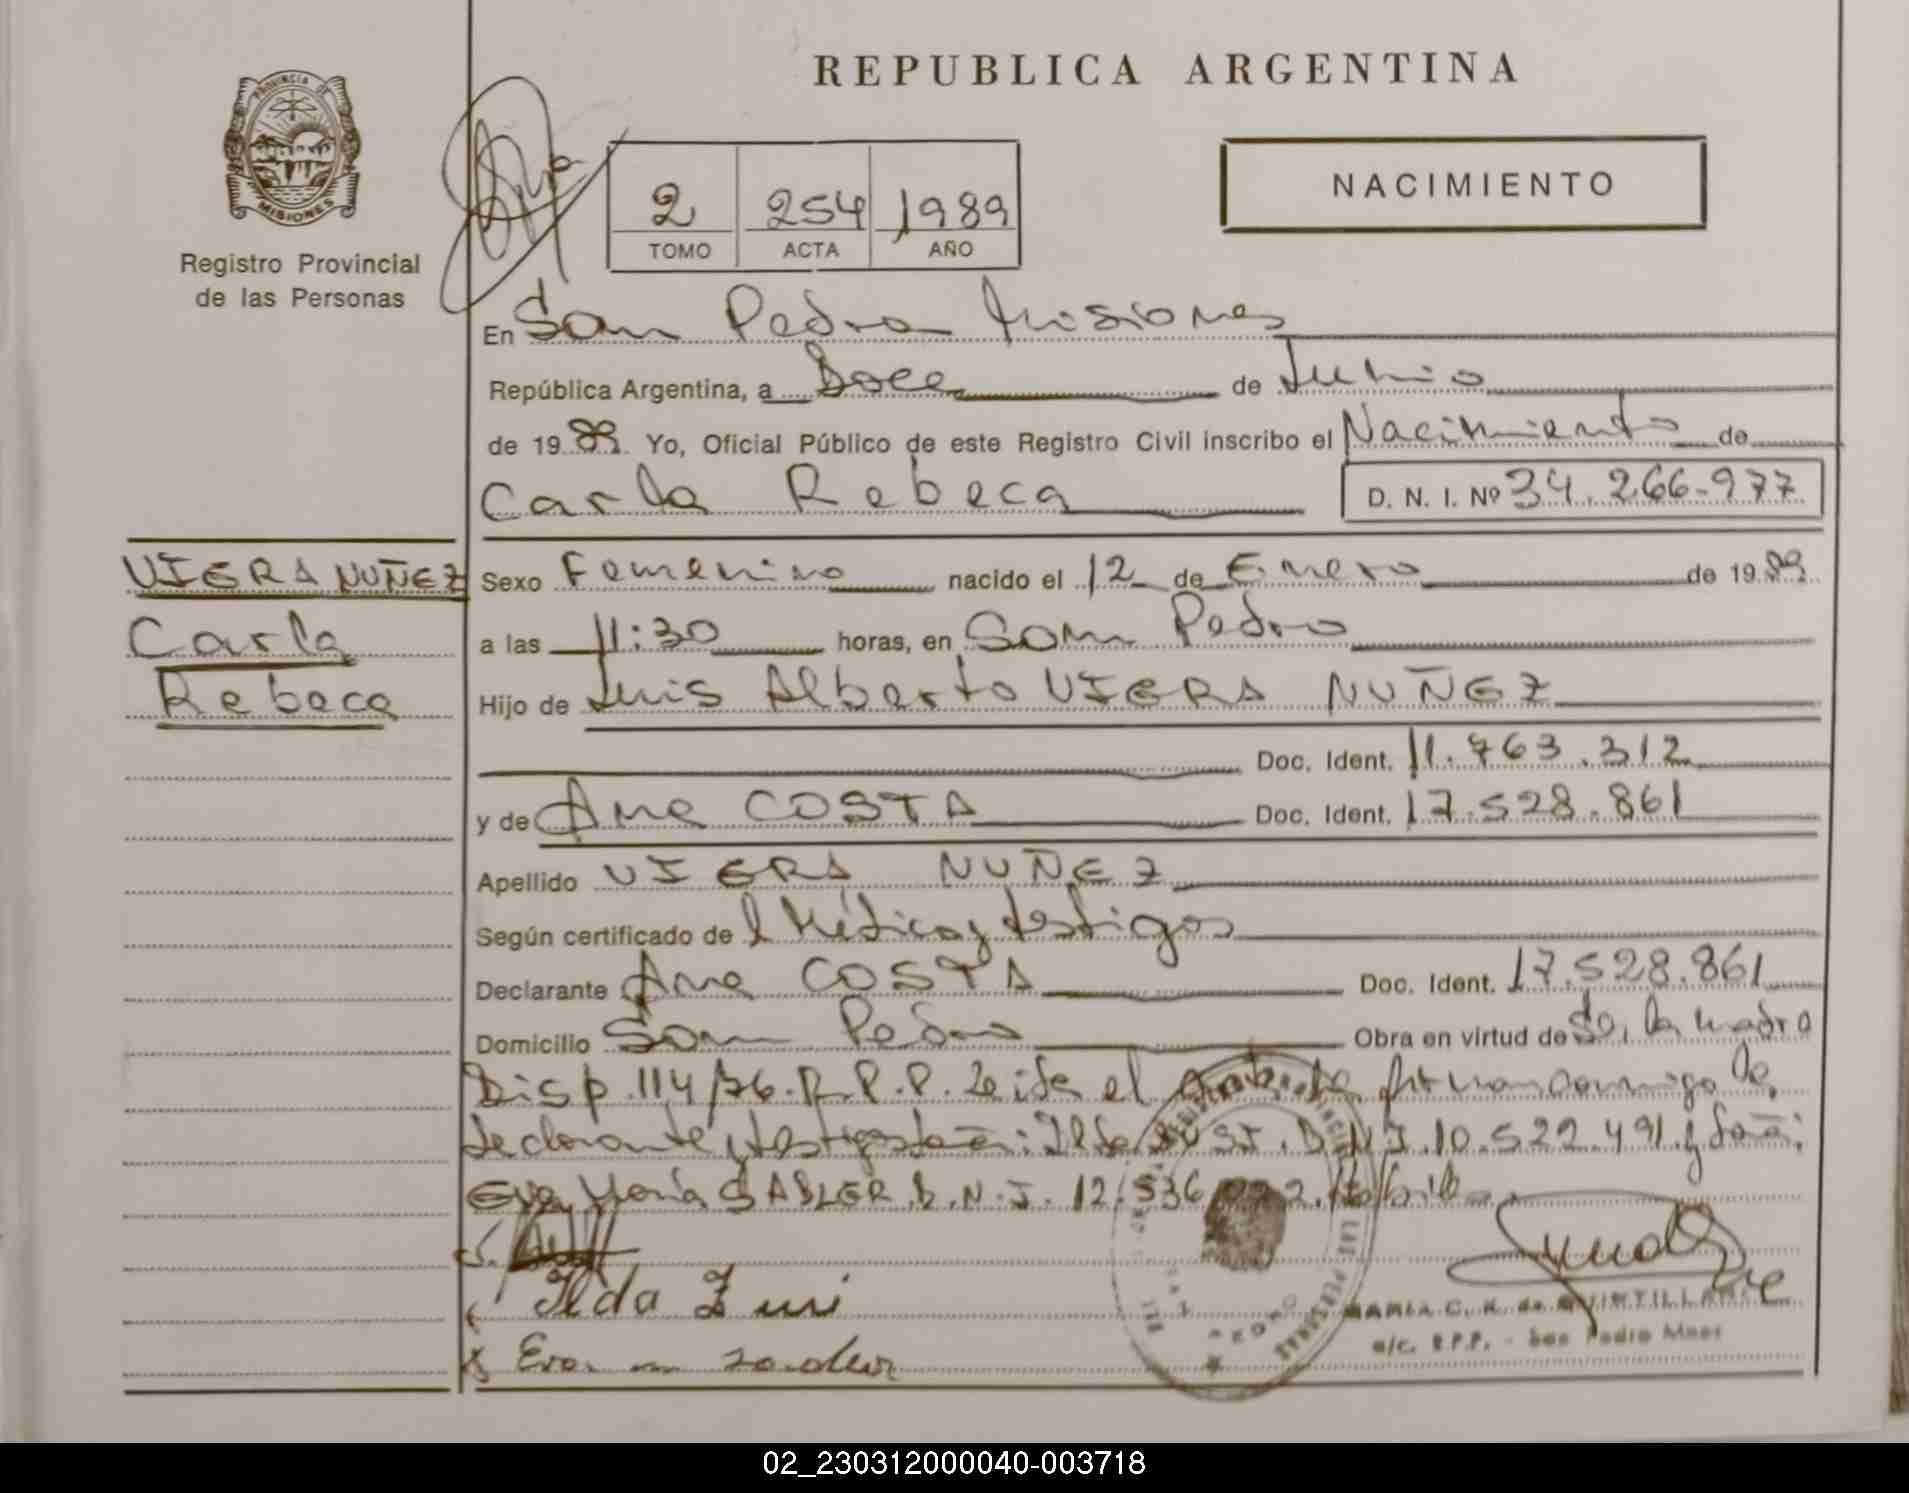 REPUBLICA ARGENTINA
PROVINCIA DE
MISIONES
Registro Provincial
de las Personas
NACIMIENTO
2 254 1989
TOMO ACTA AÑO
En San Pedro Misiones
República Argentina, a Doce de Junio
de 1989 Yo, Oficial Público de este Registro Civil inscribo el Nacimiento de
Carla Rebeca D. N. I. Nº 34.266.977
VIERA NUÑEZ
Carla
Rebeca
Sexo Femenino nacido el 12 de Enero de 1989
a las 11:30 horas, en San Pedro
Hijo de Luis Alberto VIERA NUÑEZ
Doc. Ident. 11.763.312
y de Ana COSTA Doc. Ident. 17.528.861
Apellido VIERA NUÑEZ
Según certificado de l Médico y testigos
Declarante Ana COSTA Doc. Ident. 17.528.861
Domicilio San Pedro Obra en virtud de Se, la madre
Disp. 114/76. R.P.P. Leida el Acta la firman conmigo la
declarante y testigos D.N.I. 10.522.491 y
Eva María D.N.I. 12.536
Ilda
Eva
MARIA C. K. de QUINTILLAN
a/c. R.P.P. - San Pedro Mnes
02_230312000040-003718